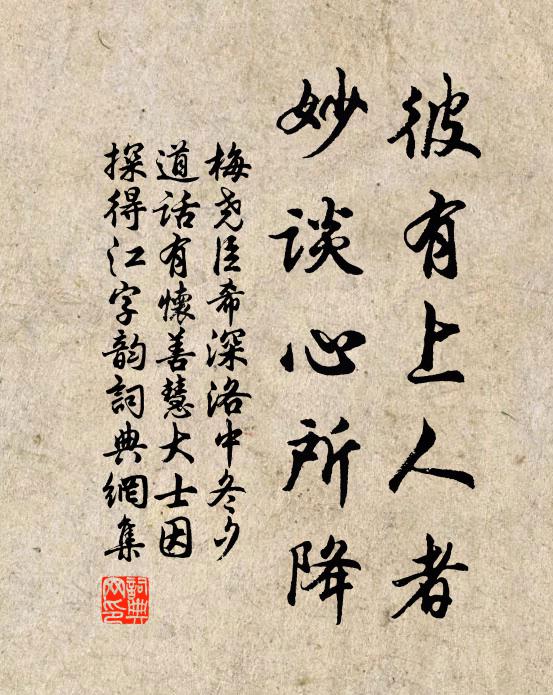 彼有上人者
妙谈心所降
梅尧臣希深洛中冬夕
道话有懷善慧大士因
探得江字韵詞典網集
詞典网印